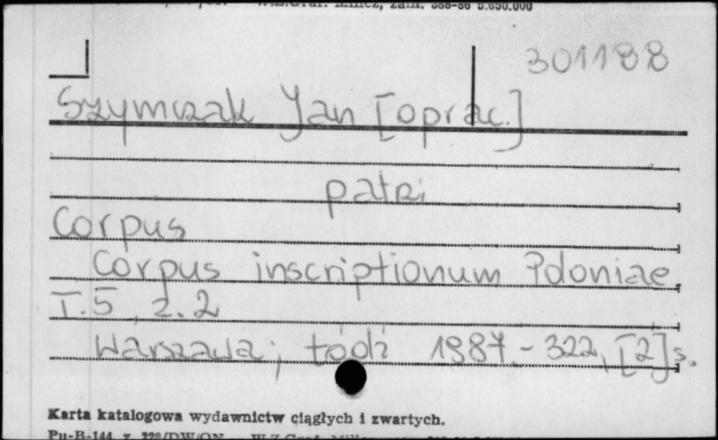 zam. 388-86 5.650.000
301188
Szymczak Jan [oprac.]
patrz
Corpus
Corpus inscriptionum Poloniae
T.5, z.2
Warszawa; Łódź 1987.- 322, [2] s.
Karta katalogowa wydawnictw ciągłych i zwartych.
Pu-B-144, z.